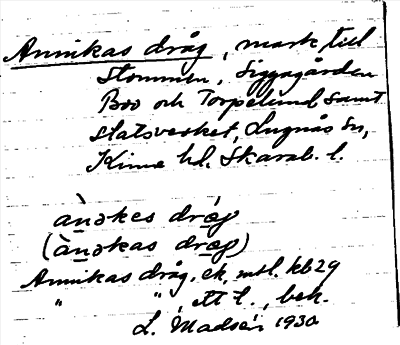 Annikas dråg, mark till
Stommen, Siggagården
Boo och Torpelund samt
statsverket, Lugnås sn,
Kinne hd. Skarab. l.
ànəkes drǽg
(ànəkas dræg)
Annikas dråg, ek, mtl. kb 29
" " , tt l., bek.
L. Madsén 1930